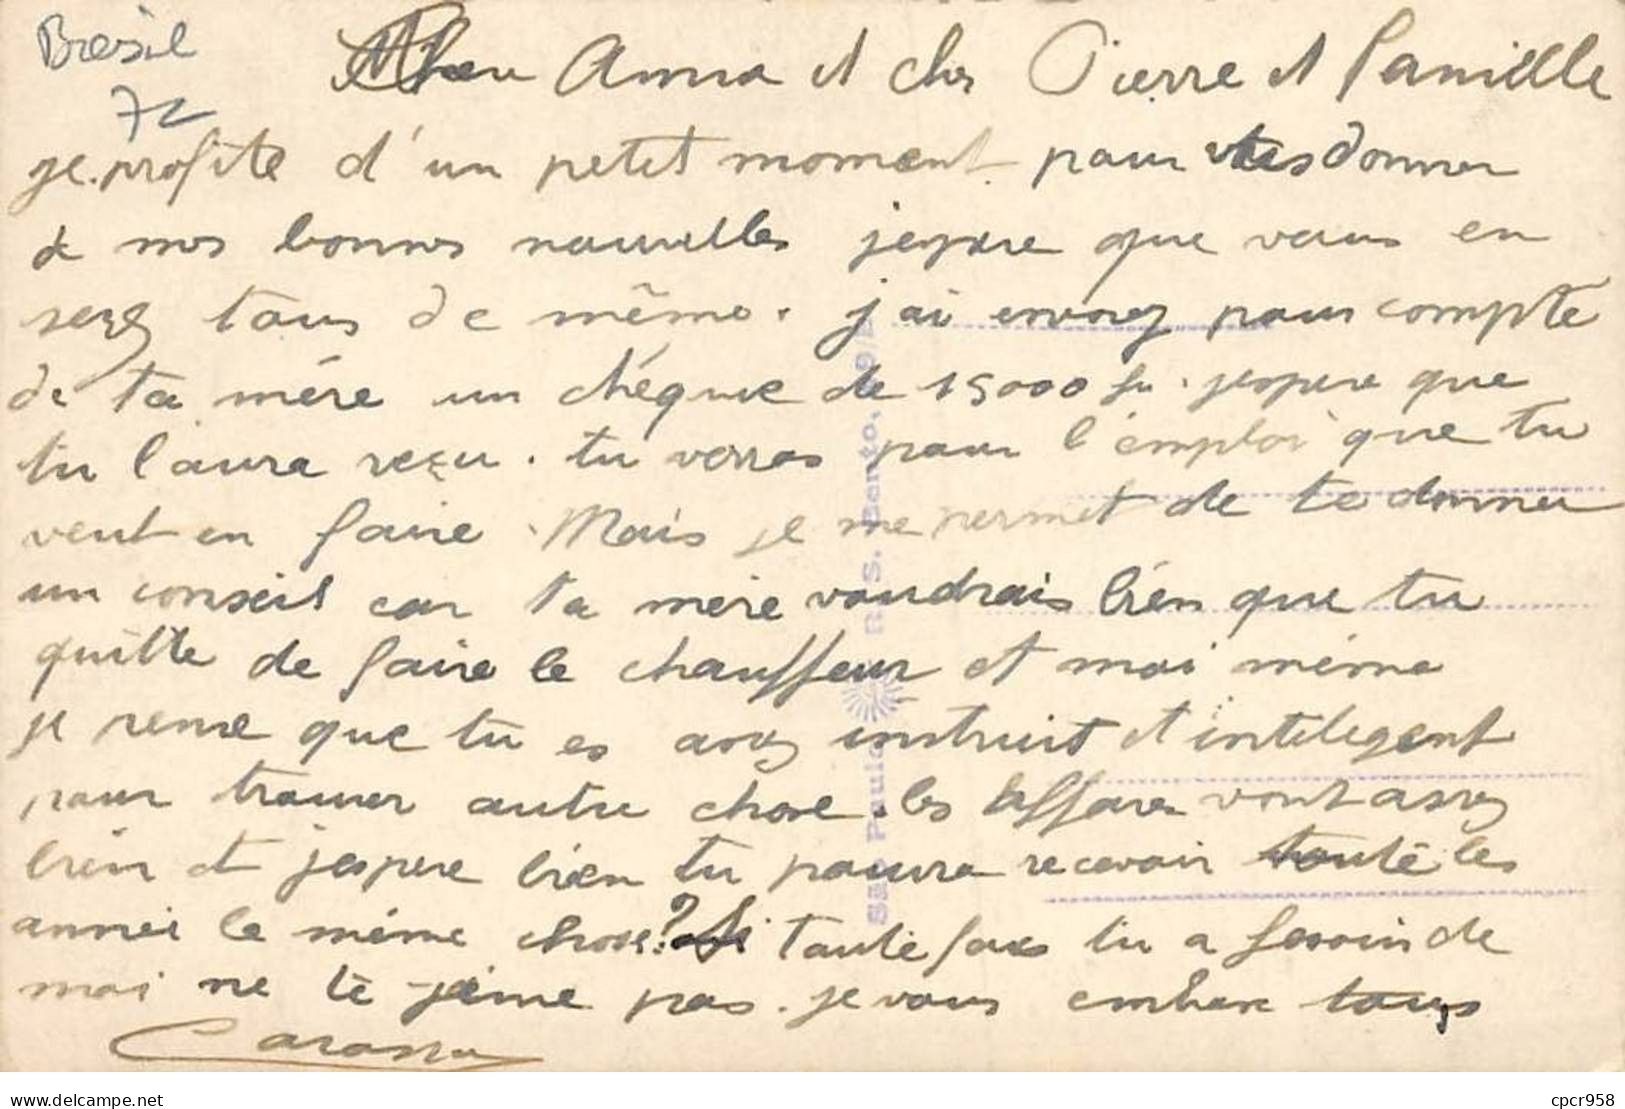 Bresil
72
Anna et cher Pierre et famille
je profite d'un petit moment pour donner
de nos bonnes nouvelles jespere que vous en
serez tous de même. j'ai envoyez pour compte
de ta mére un chéque de 15000 fr. jespere que
tu l'aura reçu. tu verras pour l'emploi que tu
veut en faire. Mais je me permet de te donner
un conseil car ta mére voudrais bien que tu
quitte de faire le chauffeur et moi même
je pense que tu es assez instruit et inteligent
pour trouver autre chose. les affares vont assez
bien et jespere bien tu pourra recevoir toute les
année le même chose? Si toute fois tu a besoin de
moi ne te jéne pas. je vous embrasse tous
São Paulo R. S. Bento, 19/
www.delcampe.net
cpcr958